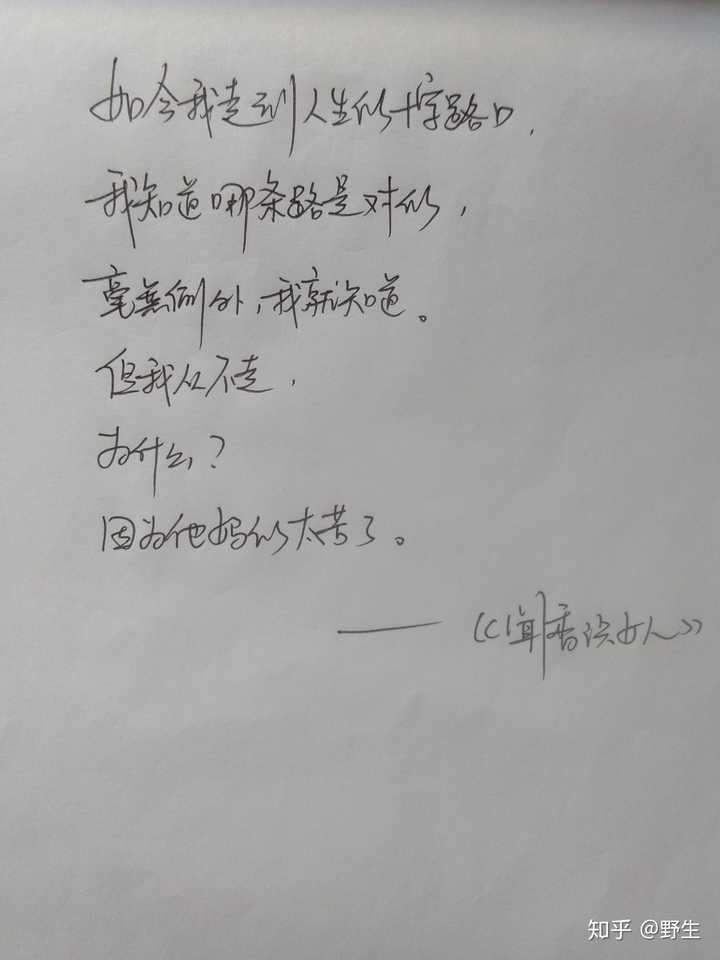 如今我走到人生的十字路口，
我知道哪条路是对的，
毫無例外，我就知道。
但我从不走，
为什么？
因为他妈的太苦了。
——《闻香识女人》
知乎 @野生